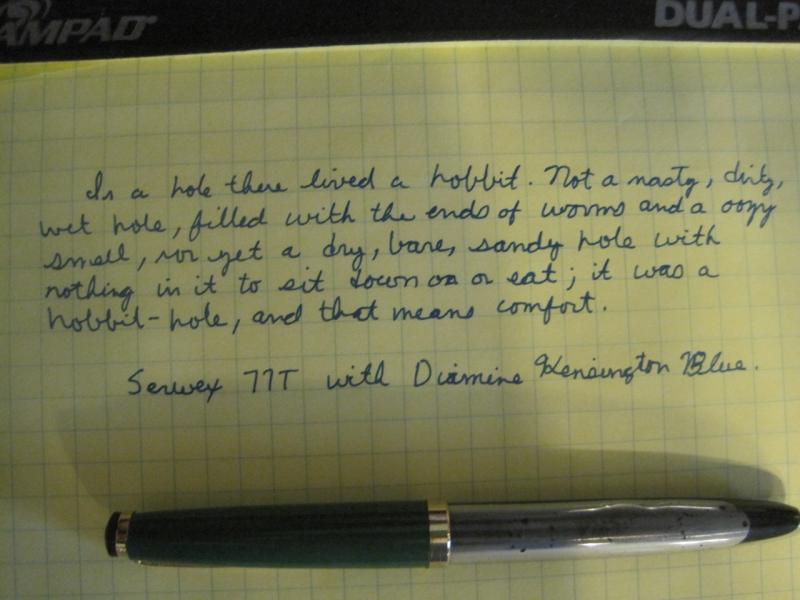 AMPAD DUAL-P
In a hole there lived a hobbit. Not a nasty, dirty,
wet hole, filled with the ends of worms and a oozy
smell, nor yet a dry, bare, sandy hole with
nothing in it to sit down on or eat; it was a
hobbit-hole, and that means comfort.
Serwex 77T with Diamine Kensington Blue.